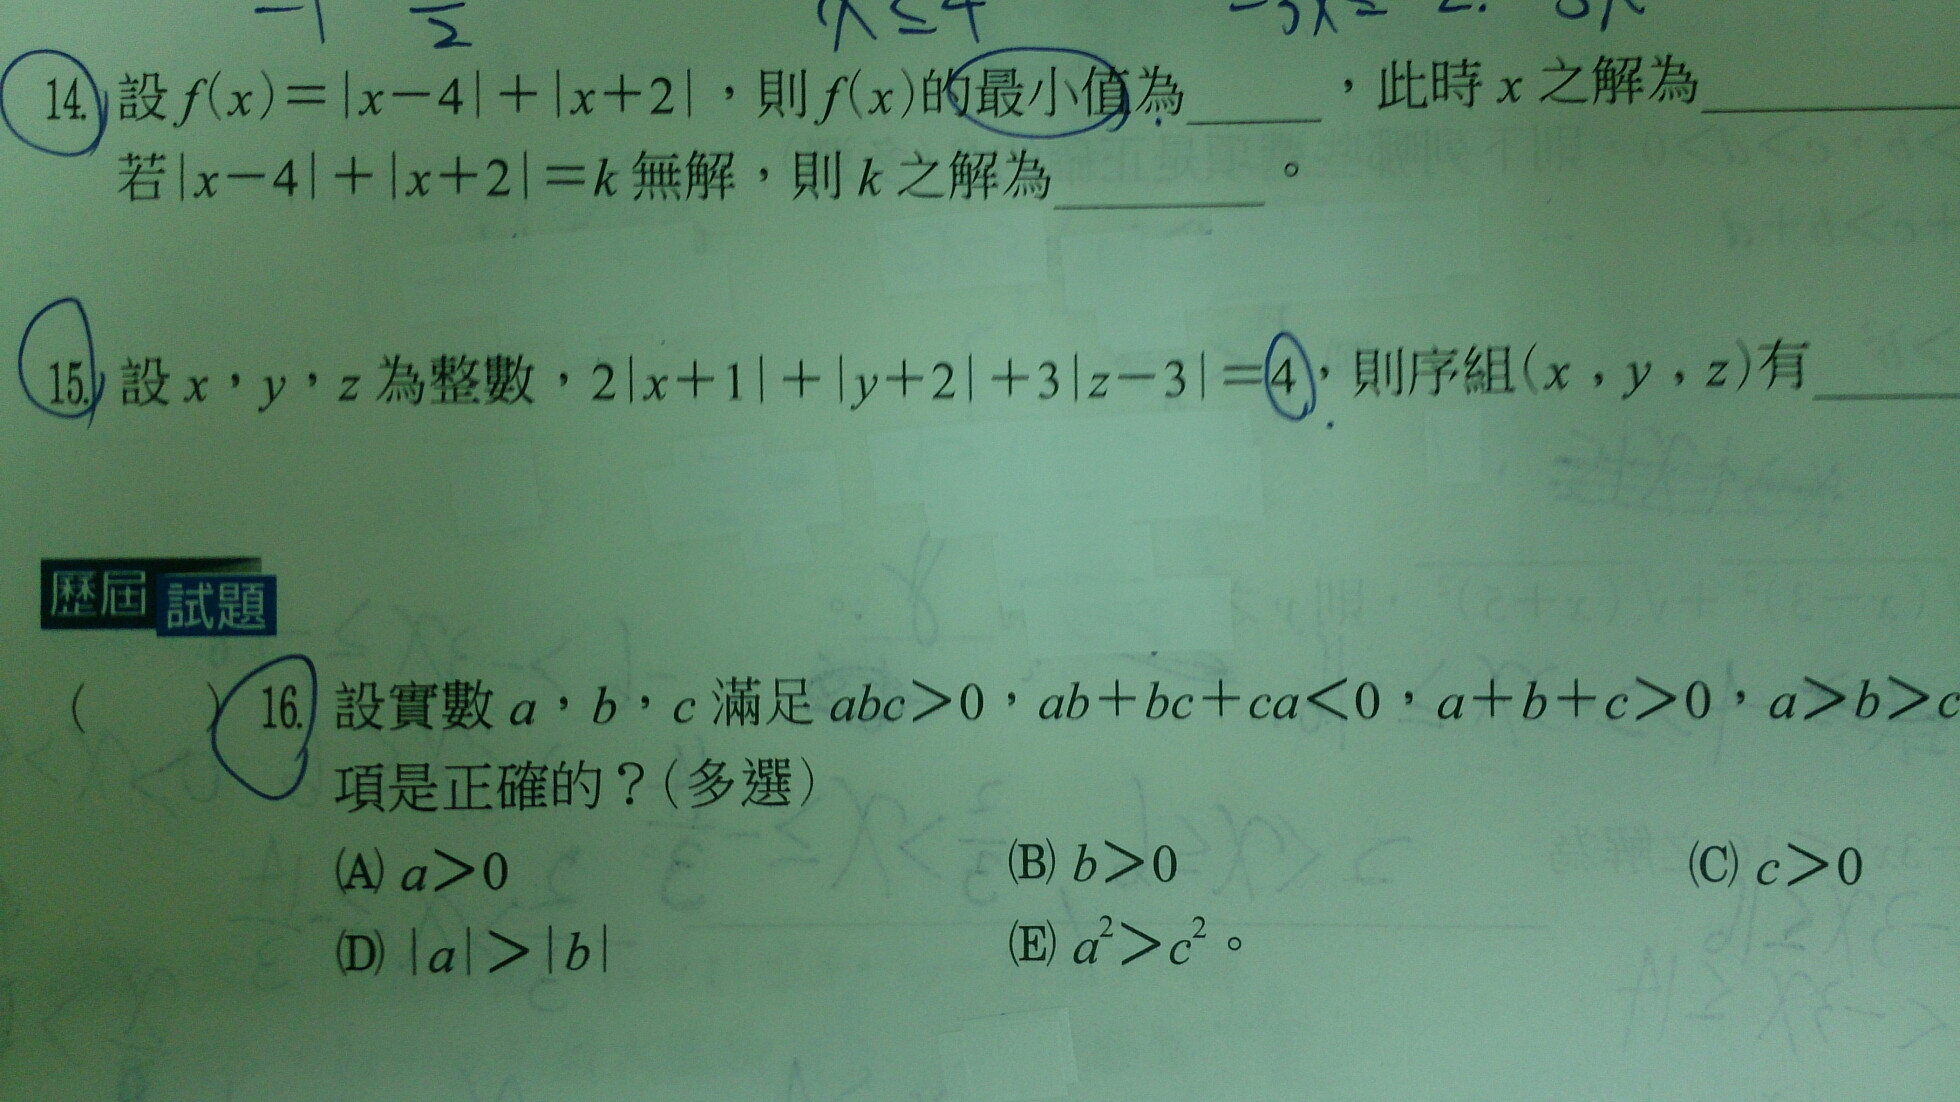 14. 設 f(x)=|x-4|+|x+2|，則 f(x)的最小值為______，此時 x 之解為______
若|x-4|+|x+2|=k 無解，則 k 之解為______。
15. 設 x，y，z 為整數，2|x+1|+|y+2|+3|z-3|=4，則序組(x，y，z)有______
歷屆試題
(　　)16. 設實數 a，b，c 滿足 abc>0，ab+bc+ca<0，a+b+c>0，a>b>c
項是正確的？(多選)
(A) a>0 (B) b>0 (C) c>0
(D) |a|>|b| (E) a²>c²。